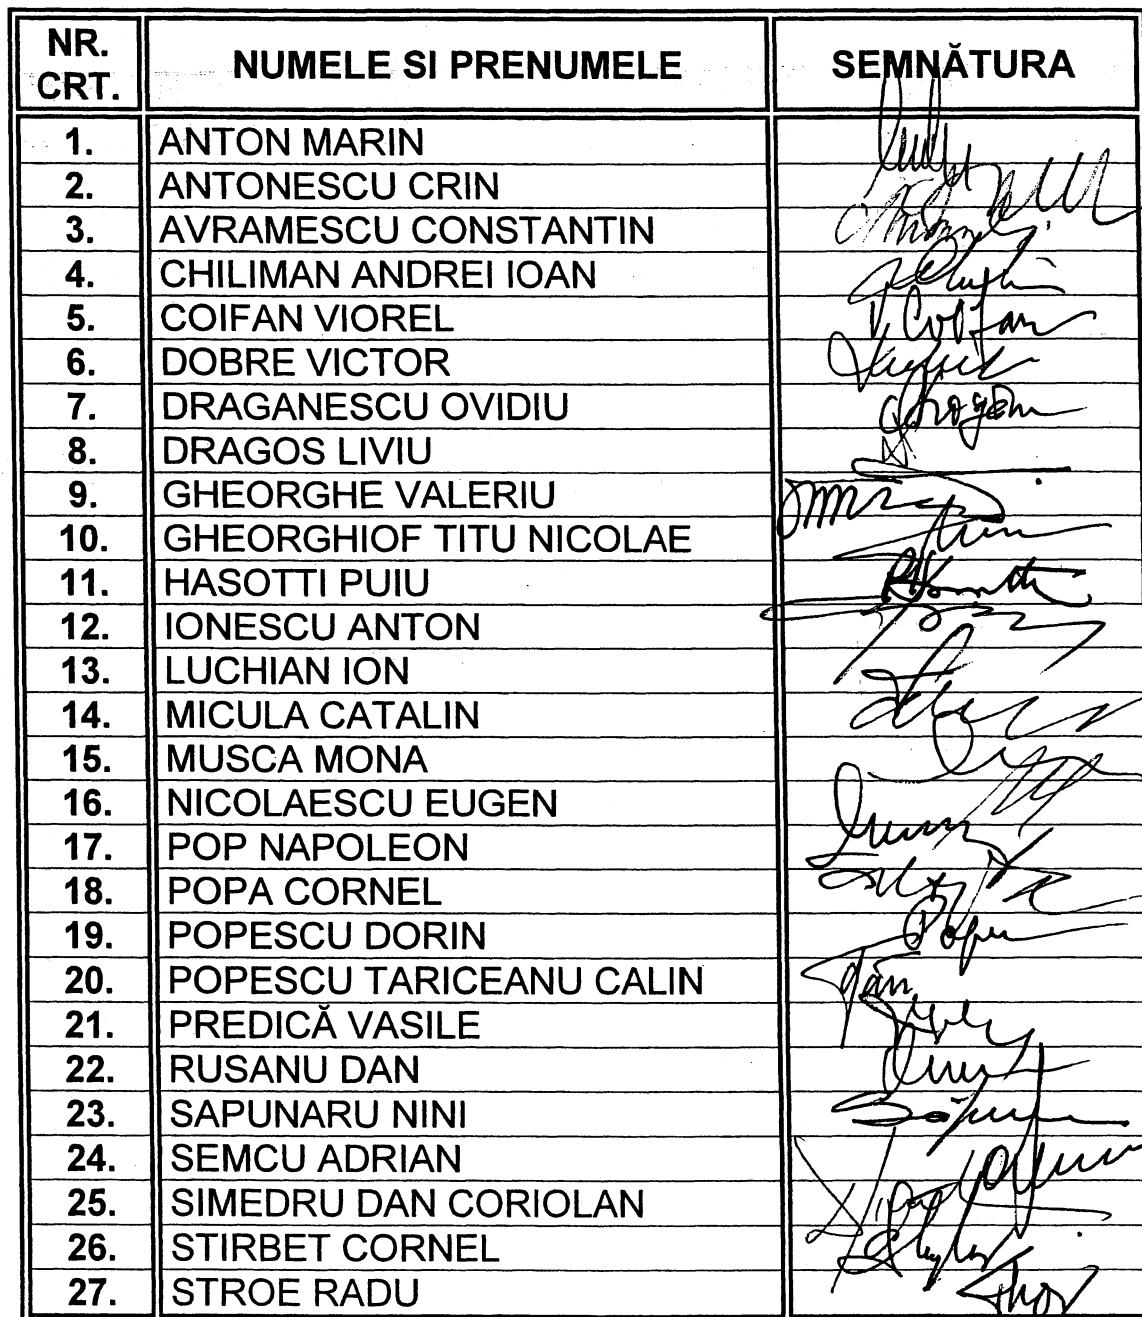 NR. CRT. NUMELE SI PRENUMELE SEMNĂTURA
1. ANTON MARIN
2. ANTONESCU CRIN
3. AVRAMESCU CONSTANTIN
4. CHILIMAN ANDREI IOAN
5. COIFAN VIOREL V. Coifan
6. DOBRE VICTOR
7. DRAGANESCU OVIDIU
8. DRAGOS LIVIU
9. GHEORGHE VALERIU
10. GHEORGHIOF TITU NICOLAE
11. HASOTTI PUIU
12. IONESCU ANTON
13. LUCHIAN ION
14. MICULA CATALIN
15. MUSCA MONA
16. NICOLAESCU EUGEN
17. POP NAPOLEON
18. POPA CORNEL
19. POPESCU DORIN
20. POPESCU TARICEANU CALIN
21. PREDICĂ VASILE
22. RUSANU DAN
23. SAPUNARU NINI
24. SEMCU ADRIAN
25. SIMEDRU DAN CORIOLAN
26. STIRBET CORNEL
27. STROE RADU